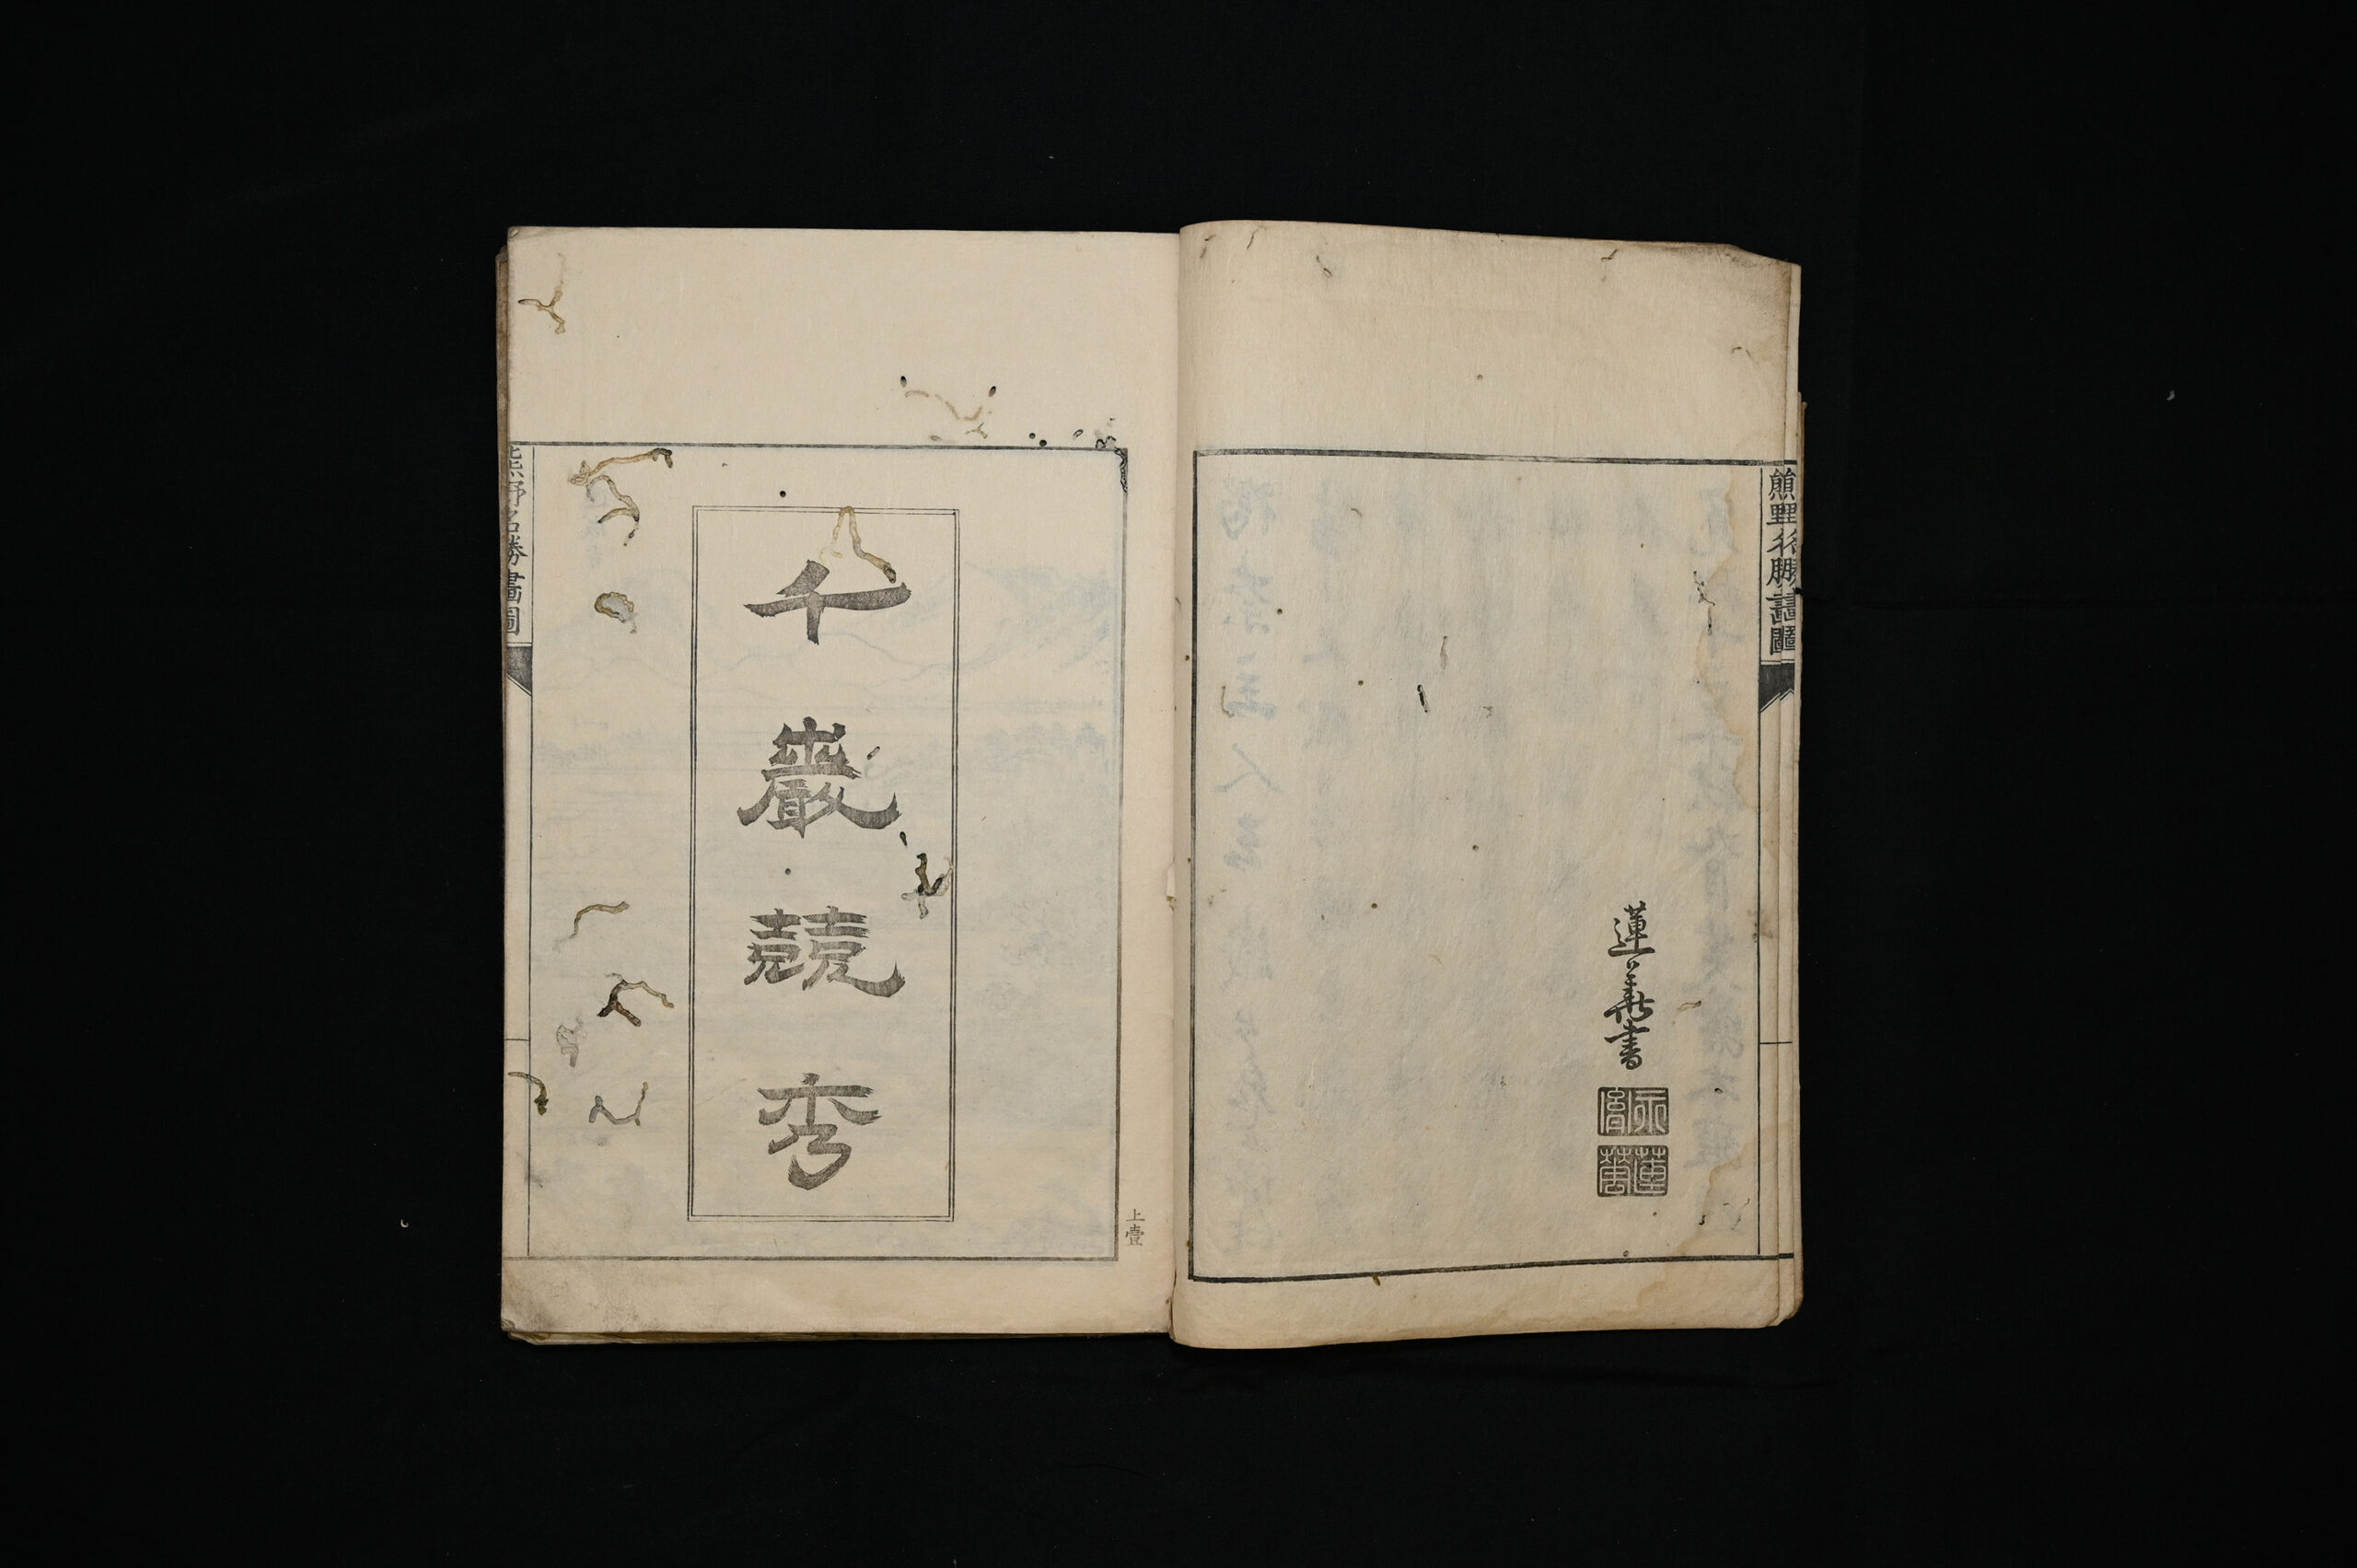 熊野名勝畫圖
蓮華書
千巖競秀
上壹
熊野名勝畫圖